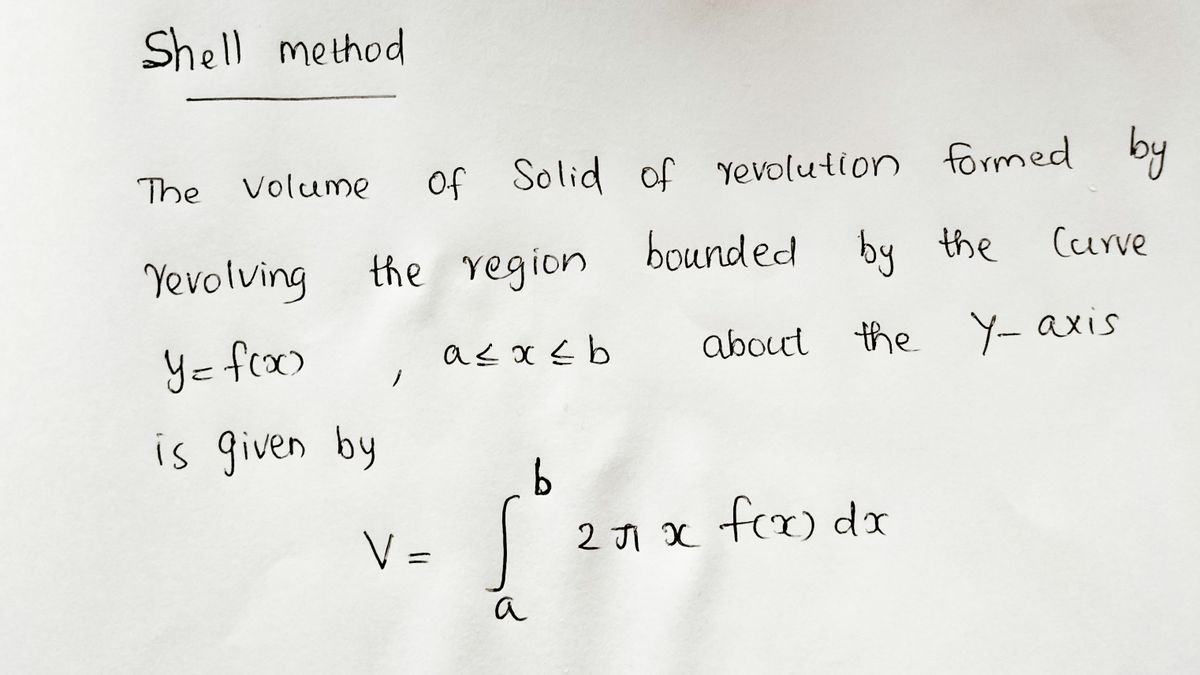 Shell method
The volume of Solid of revolution formed by
revolving the region bounded by the curve
y = f(x) , a ≤ x ≤ b about the y-axis
is given by
V = ∫_a^b 2π x f(x) dx